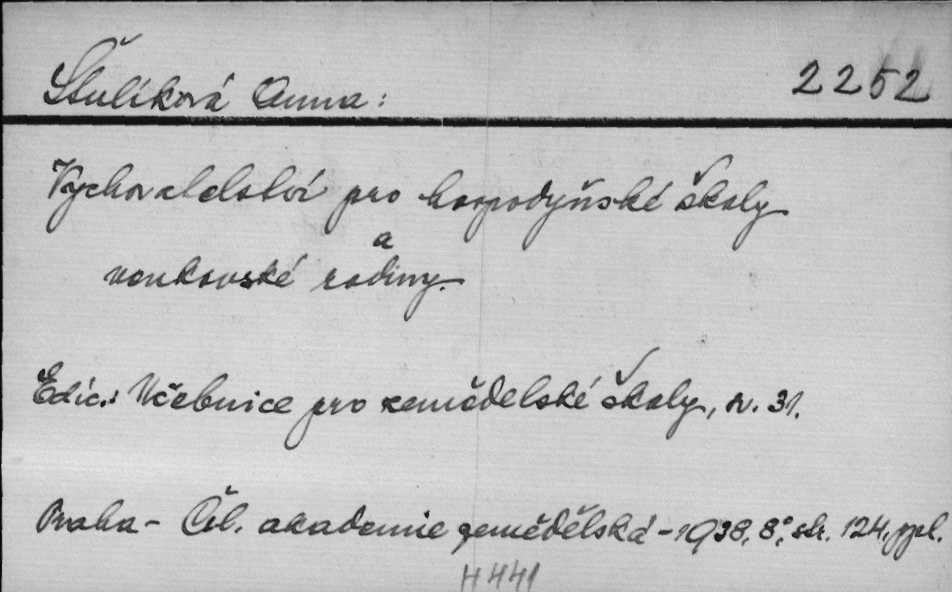 Štulíková Anna: 2252
Vychovatelství pro hospodyňské školy
a
venkovské rodiny.
Edic.: Učebnice pro zemědelské školy, sv. 31.
Praha - Čsl. akademie zemědělská - 1938, 8°, str. 124, ppl.
H 441